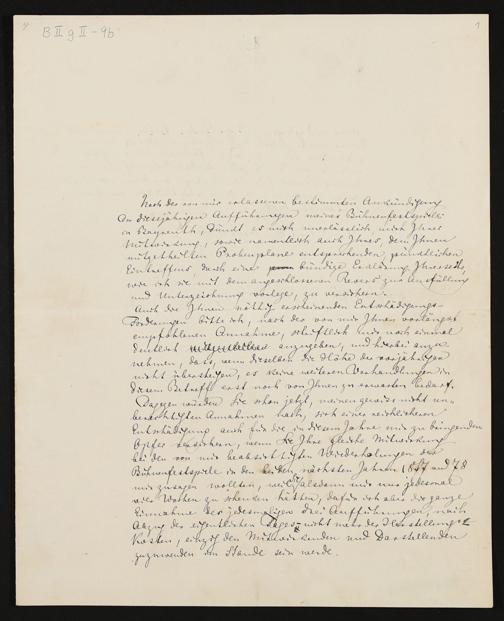 B II g II - 9b
1
Nach der von mir erlassenen bestimmten Ankündigung
der diesjährigen Aufführungen meines Bühnenfestspieles
in Bayreuth, dünkt es mich unerlässlich mich Ihrer
Mitwirkung, sowie namentlich auch Ihres, dem Ihnen
mitgetheilten Probenplane entsprechenden, pünktlichen
Eintreffens, durch eine bündige Erklärung Ihrerseits,
wie ich sie mit dem angeschlossenen Revers zur Ausfüllung
und Unterzeichnung vorlege, zu versichern.
Auch die Ihnen nöthig erscheinenden Entschädigungs-
Forderungen bitte ich, nach der von mir Ihnen vorlängst
empfohlenen Annahme, schriftlich mir noch einmal
deutlich anzugeben, und hierbei anzu-
nehmen, dass, wenn dieselben die Höhe der vorjährigen
nicht übersteigen, es keine weiteren Verhandlungen in
diesem Betreff erst noch von Ihnen zu erwarten bedarf.
Dagegen würden Sie schon jetzt, meinen gewiss nicht un-
berechtigten Annahmen nach, sich einer reichlicheren
Entschädigung auch für die in diesem Jahre mir zu bringenden
Opfer versichern, wenn Sie Ihre gleiche Mitwirkung
bei den von mir beabsichtigten Wiederholungen der
Bühnenfestspiele in den beiden nächsten Jahren 1877 und 78
mir zusagen wollten, weil Sie alsdann mir nur jedesmal
vier Wochen zu schenken hätten, dafür ich aber die ganze
Einnahme der jedesmaligen drei Aufführungen, nach
Abzug der eigentlichen Tages- nicht mehr der Herstellungs-
Kosten, einzig den Mitwirkenden und Darstellenden
zuzuwenden im Stande sein werde.